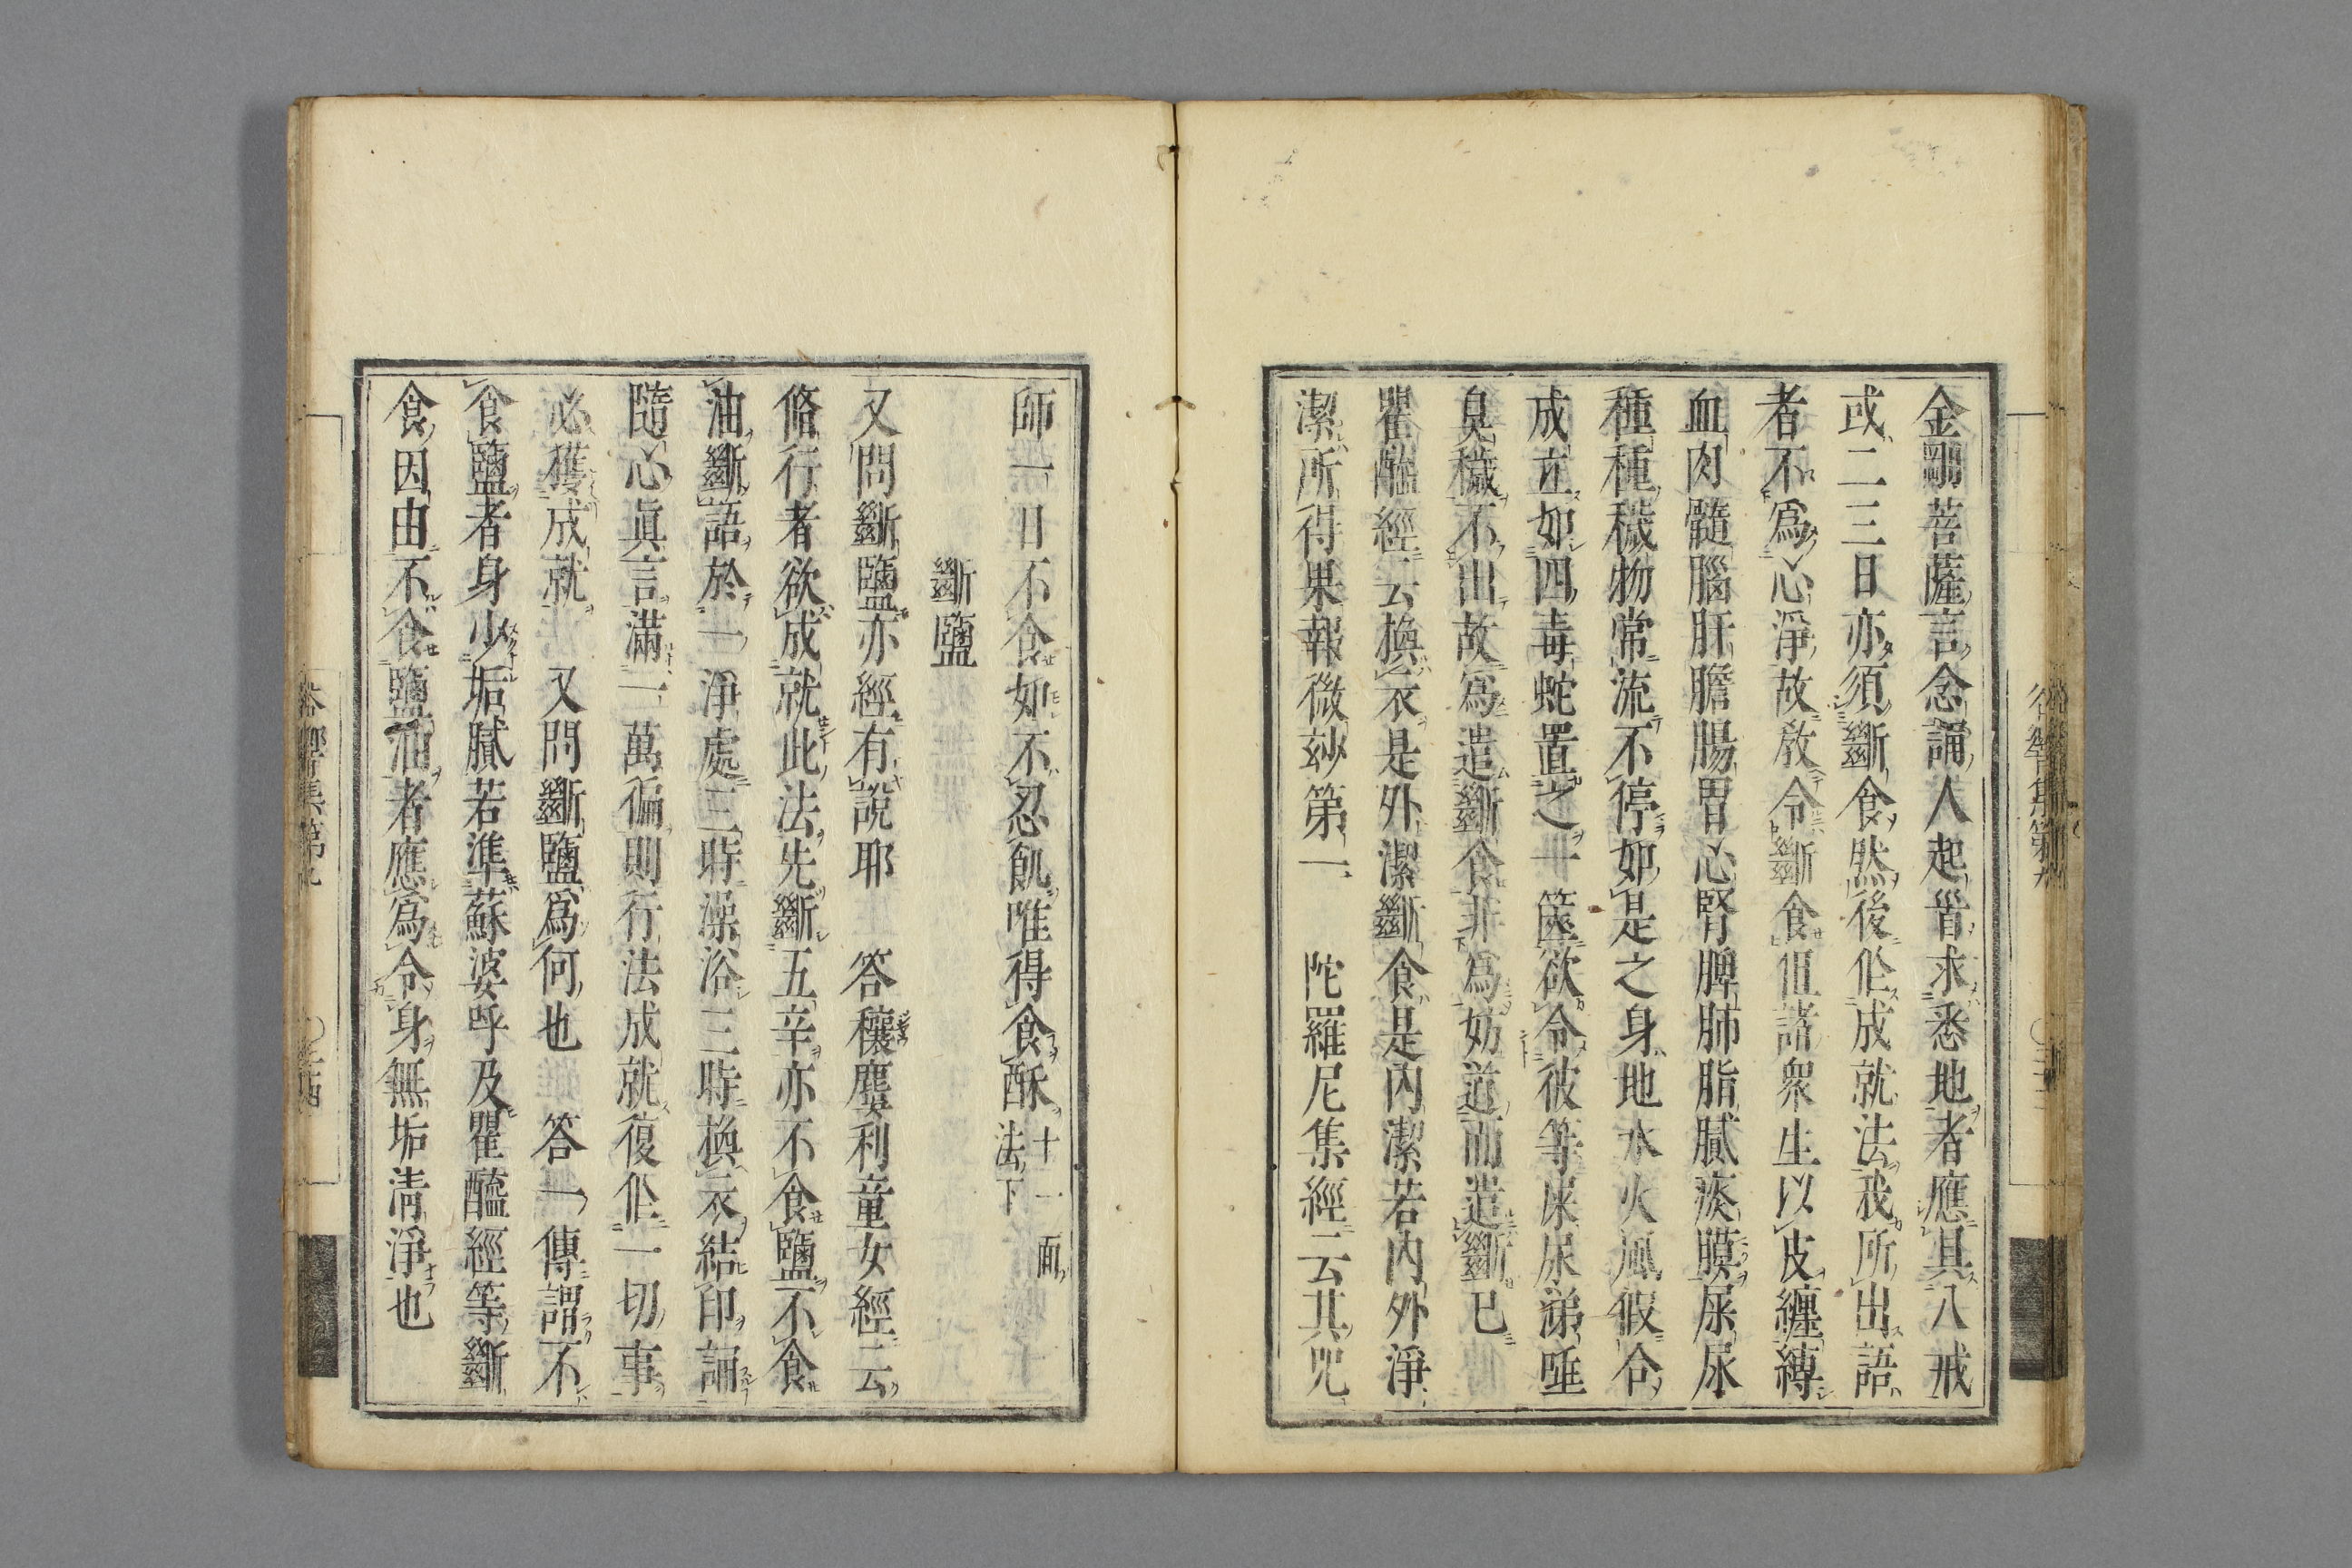 金剛菩薩言念誦人起首求悉地者應具八戒
或二三日亦須斷食然後作成就法我所出語
者不爲心淨故敎令斷食但諸衆生以皮纏縛
血肉髓腦肝膽腸胃心腎脾肺脂膩痰膜屎尿
種種穢物常流不停如是之身地水火風假合
成立如四毒蛇置之一篋欲令彼等屎尿涕唾
臭穢不出故爲遣斷食非爲妨道而遣斷已
瞿醯經云換衣是外潔斷食是內潔若内外淨
潔所得果報微玅第一 陀羅尼集經云其咒
師一日不食如不忍飢唯得食酥十一面
法下
斷鹽
又問斷鹽亦經有說耶 答穰麌利童女經云
脩行者欲成就此法先斷五辛亦不食鹽不食
油斷語於一淨處三時澡浴三時換衣結印誦
隨心眞言滿一萬徧則行法成就復作一切事
必獲成就 又問斷鹽爲何也 答一傳謂不
食鹽者身少垢膩若準蘇婆呼及瞿醯經等斷
食因由不食鹽油者應爲令身無垢淸淨也